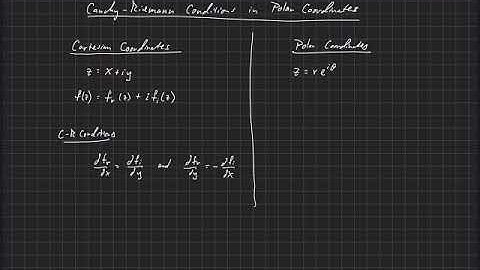 Cauchy-Riemann Conditions in Polar Coordinates
Cartesian Coordinates
z = x + iy
f(z) = fr(z) + i fi(z)
C-R Conditions
dfr/dx = dfi/dy and dfr/dy = - dfi/dx
Polar Coordinates
z = r e^{iθ}